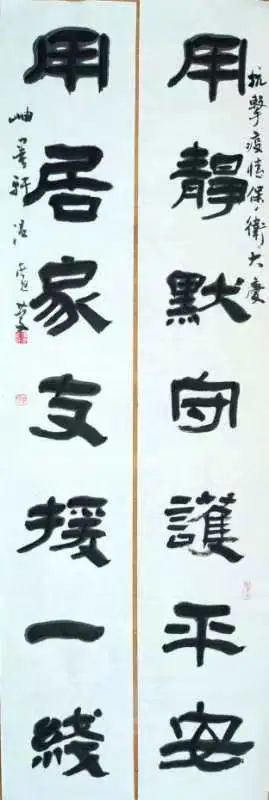 抗擊疫情保衛大慶
用靜默守護平安
用居家支援一綫